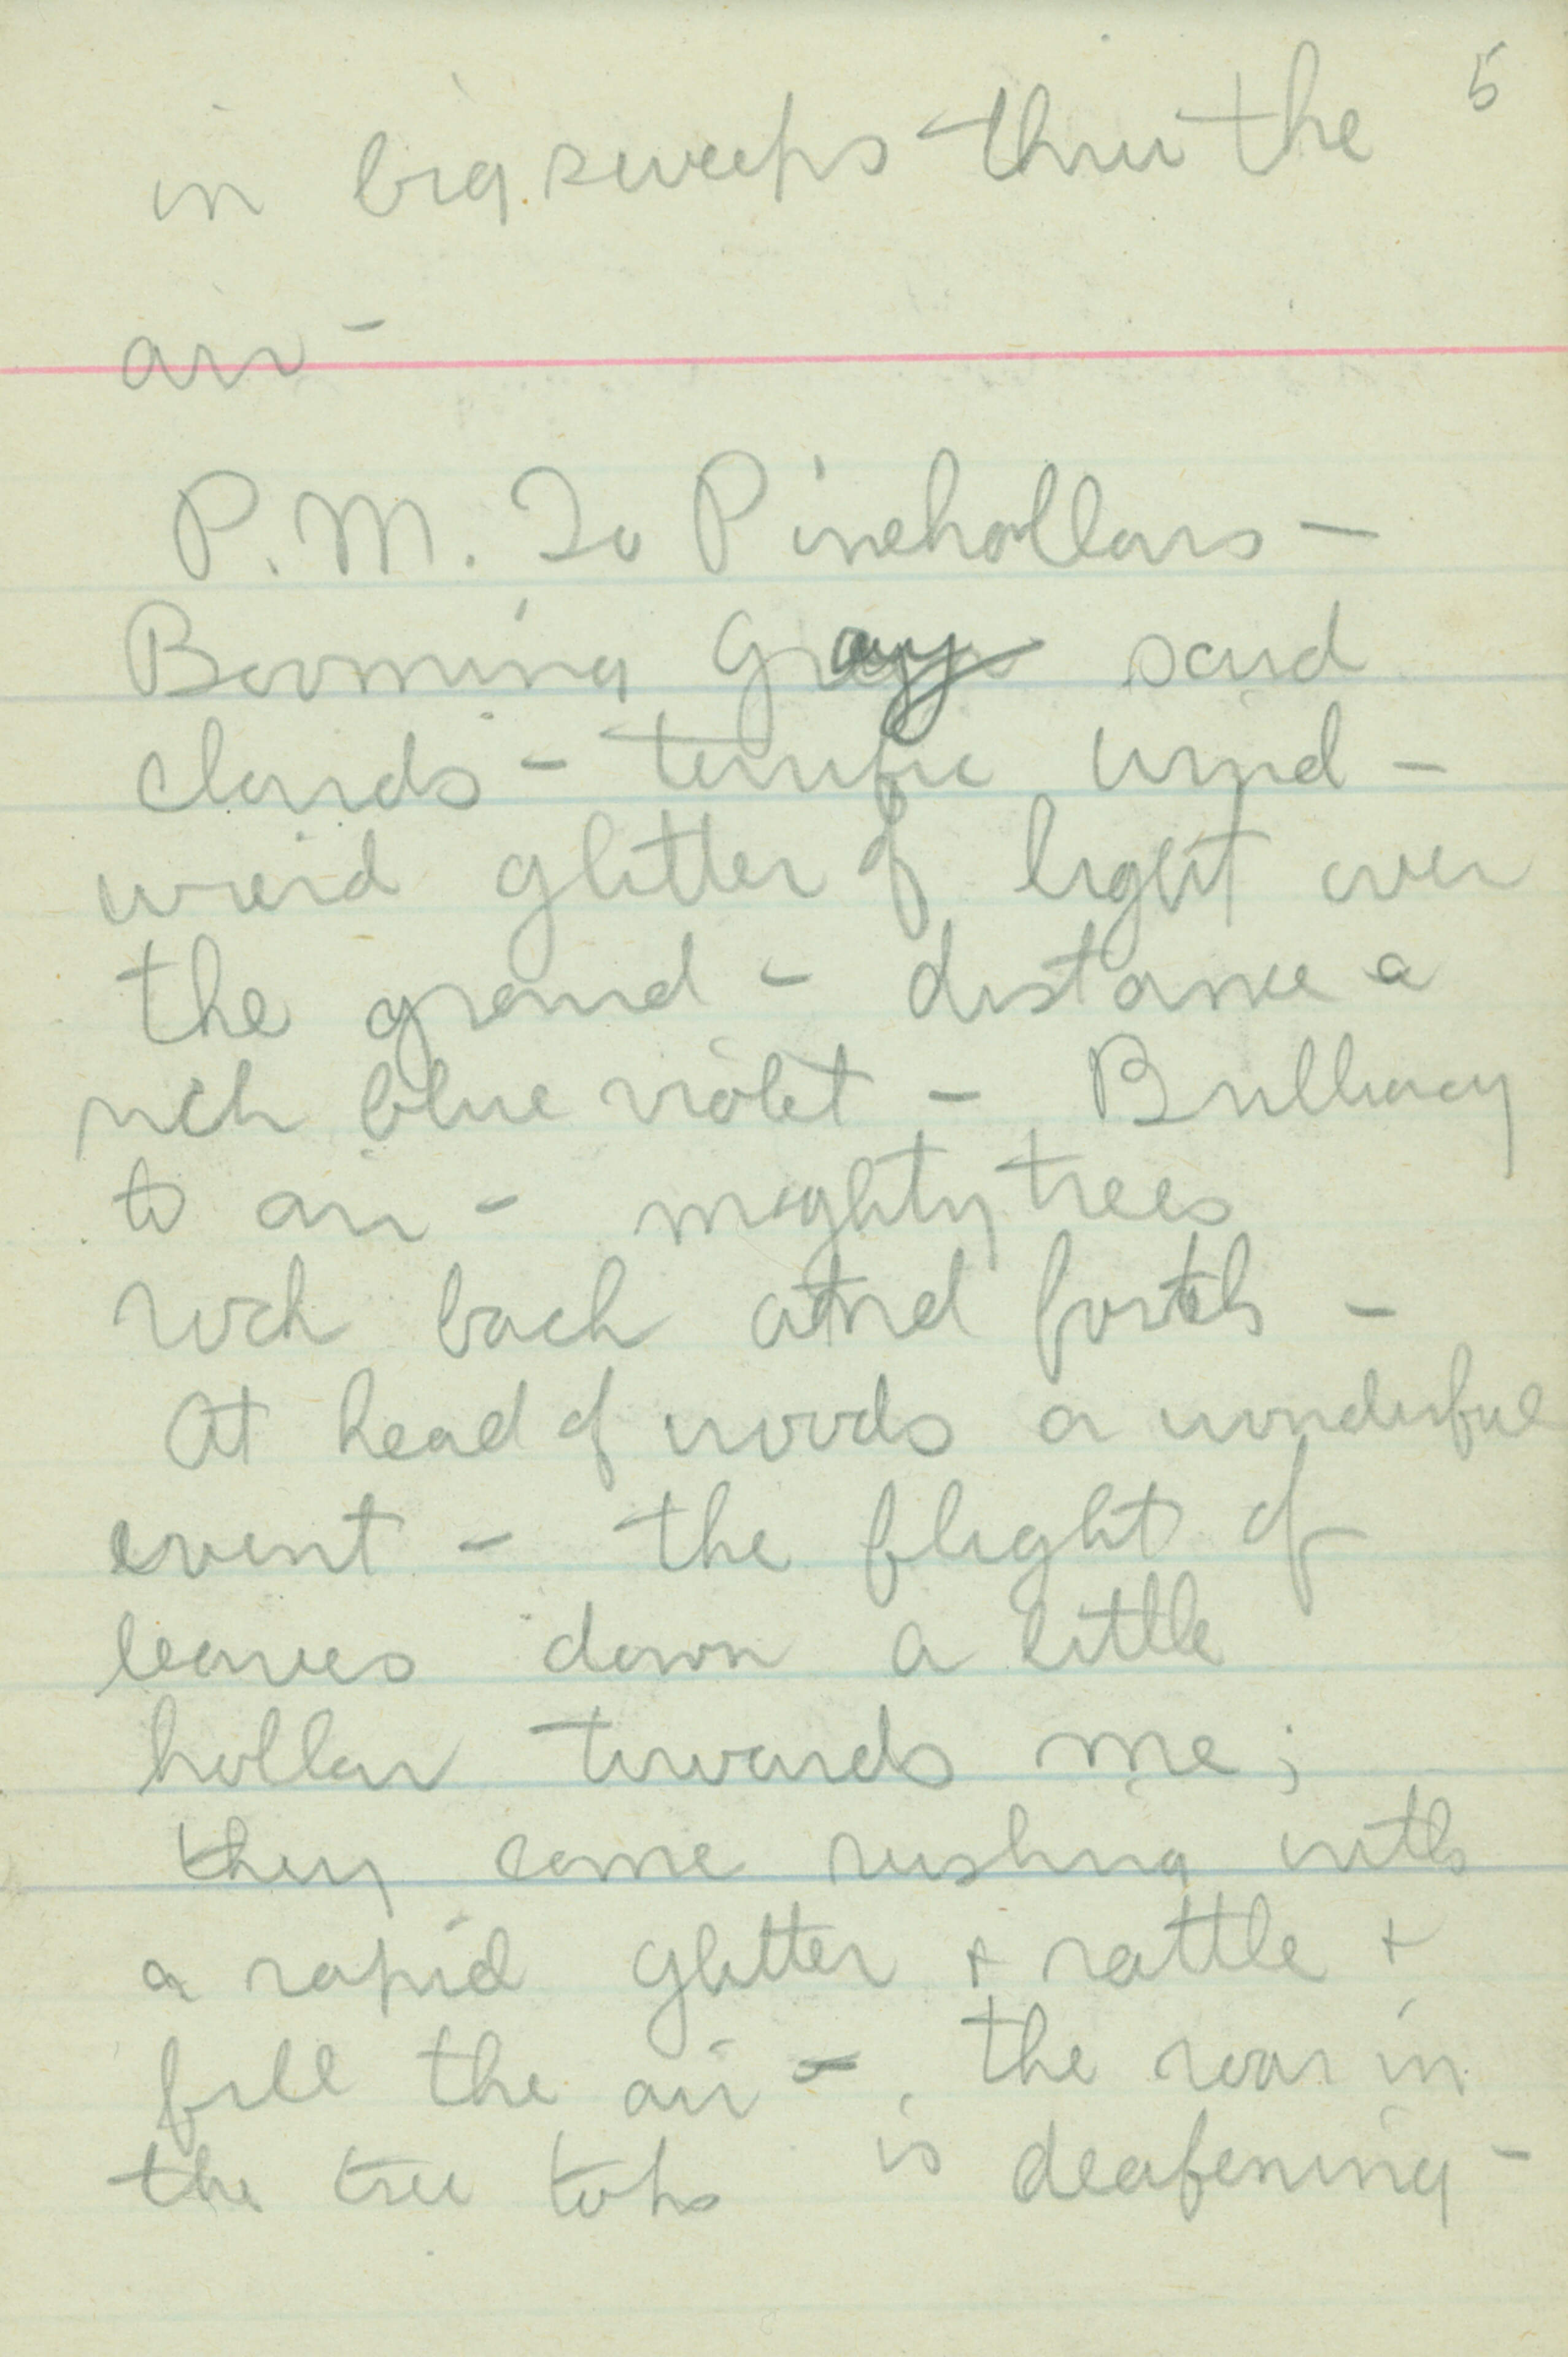 5
in big sweeps thru the
air –
P.M. To Pinehollars –
Booming Gray sand
clouds – terrific wind –
weird glitter of light over
the ground – distance a
rich blue violet – Brilliancy
to air – mighty trees
rock back and forth –
At head of woods a wonderful
event – the flight of
leaves down a little
hollar towards me ;
they come rushing with
a rapid glitter + rattle +
fill the air – the roar in
the tree tops is deafening –